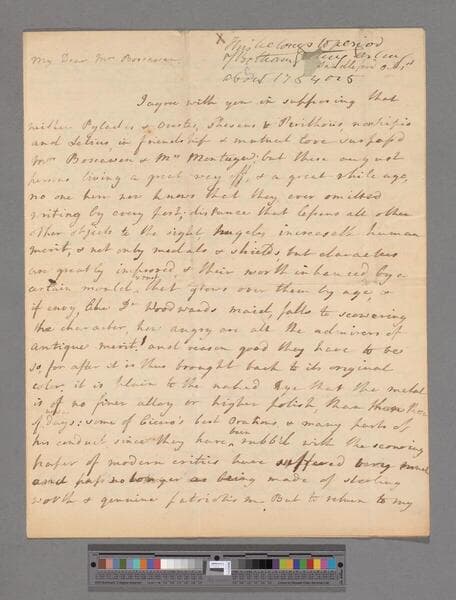 My Dear Mrs Boscawen
X This belongs to period
of Bothams
about 1754 or 5
I agree with you in supposing that
neither Pylades & Orestes, Theseus & Perithous, nor Scipio
and Lelius, in friendship & mutual love surpass'd
Mrs Boscawen & Mrs Montagu; but these being not
persons living a great way off, & a great while ago,
no one here nor knows that they ever omitted
writing by every post; distance that lessens all other
other objects to the sight hugely increaseth human
merit, & not only medals & shields, but characters
are greatly improved & their worth inhanced by a
certain mould that grows over them by age, &
if envy, like Dr Woodwards maid, falls to scowering
the character, how angry are all the admirers of
antique merit! and reason good they have to be
so, for after it is thus brought back to its original
color, it is plain to the naked Eye that the metal
is of no finer alloy or higher polish, than than those
of days: some of Cicero's best Orations & many parts of
his conduct since they have been rubb'd with the scowring
paper of modern critics have suffered very much
and pass no longer as being made of sterling
worth & genuine patriotism. But to return to my